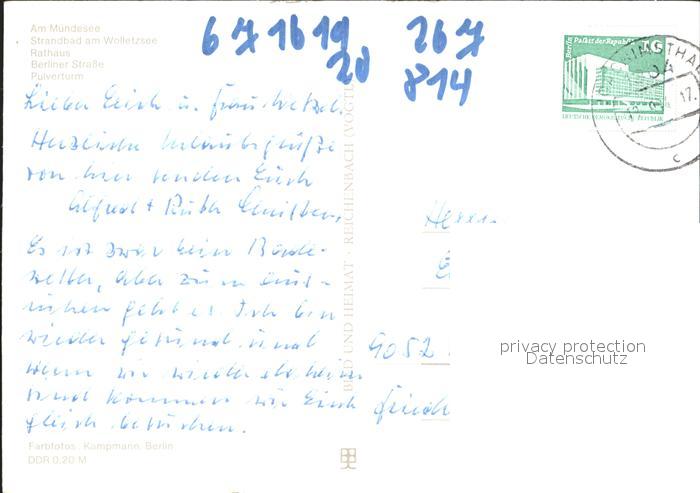 Am Mündesee
Strandbad am Wolletzsee
Rathaus
Berliner Straße
Pulverturm
6 7 16 19 26 7
20 814
Berlin Palast der Republik
DEUTSCHE DEMOKRATISCHE REPUBLIK
C
Lieber Erich u. Frau
Herzliche Urlaubsgrüße
von hier senden Euch
Alfred + Ruth
Es ist zwar kein Bade-
wetter, aber zum aus-
ruhen geht es. Ich bin
wieder gesund und
wenn wir wieder daheim
sind kommen wir Euch
gleich besuchen.
BILD UND HEIMAT · REICHENBACH (VOGTL
Herrn
E
9052
privacy protection
Datenschutz
Farbfotos: Kampmann, Berlin
DDR 0,20 M